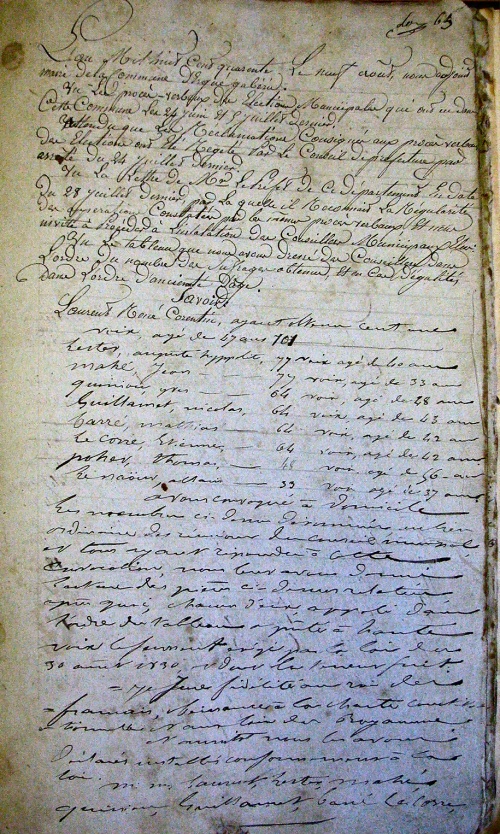 65
L'an Mil huit Cent quarante Le neuf août, nous adjoint
maire de la Commune d'Ergué gabéric.
Vu Le procès-verbaux des Elections Municipales qui ont eu dans
Cette Commune Les 24 juin et 5 juillet dernier.
attendu que Les Réclamations Consignées aux procès verbaux
des Elections ont été Rejeté par Le Conseil de préfecture par
arrêté du 24 juillet dernier
Vu La Lettre de Mr Le préfet de Ce département En date
du 28 juillet dernier par La quelle il Reconnait La Régularité
des opérations Consignées par Le même procès verbaux Et nous
invite à procéder à L'installation des Conseillers Municipaux
Vu Le tableau que nous avons dressé des Conseillers dans
L'ordre du nombre de suffrages obtenus Et en Cas d'égalité
dans L'ordre d'ancienneté d'age.
Savoir
Laurent René Corentin, ayant obtenu cent une
voix, agé de 47 ans 101
auguste hyppolite, 77 voix agé de 40 ans
mahé, Jean — 74 voix, agé de 33 ans
yves — 64 voix, agé de 28 ans
Guillamet, nicolas, 64 voix agé de 43 ans
barré, mathias — 64 voix, agé de 42 ans
Le corre, Etienne, 64 voix, agé de 42 ans
thomas, — 48 voix, agé de 56 ans
33 voix agé de 37 ans
avons convoqué à domicile
Les membres ci dessus dénommés au lieu
ordinaire des réunions du conseil municipal
et tous ayant répondu à cette
convocation, nous leur avons donné
lecture des pièces ci-dessus relatées
après quoi, chacun d'eux appelé dans
l'ordre du tableau a prêté à haute
voix le serment exigé par la loi du
30 août 1830, dont la teneur suit
= Je jure fidélité au roi des
= français, obéissance à la charte
= et aux lois du Royaume
nous les avons
déclarés installés conformément à la
loi. M.M. Laurent, mahé
Guillamet, barré Le Corre,